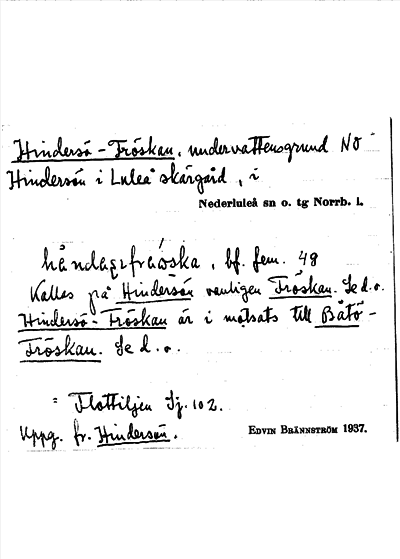 Hindersö-Fröskan, undervattensgrund NO
Hindersön i Luleå skärgård, i
Nederluleå sn o. tg Norrb. l.
bf. fem. 48
Kallas på Hindersön vanligen Fröskan. Se d. o.
Hindersö-Fröskan är i motsats till Båtö-
Fröskan. Se d. o.
= Flottiljen Sj. 102.
Uppg. fr. Hindersön.
EDVIN BRÄNNSTRÖM 1937.